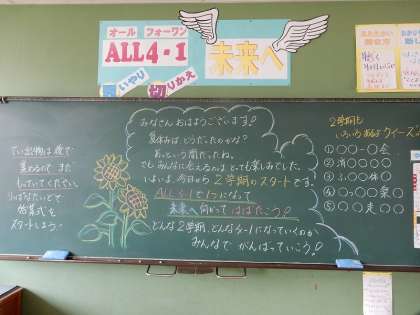 オール フォー ワン
ALL 4-1
未来へ
思いやり
切りかえ
みなさん おはようございます!
夏休みは どうだったのかな?
あっという間だったね。
でも、みんなに会えるのは とっても楽しみでした。
いよいよ、今日から2学期のスタートです。
ALL 4-1で1つになって
未来へ向かって はばたこう!
どんな2学期、どんな4-1になっていくのか
みんなで がんばっていこう!
てい出物は後で
集めるので まだ
もっていてください。
りっぱなたいどで
始業式を
スタートしよう!
2学期も
いろいろあるよ クイーズ
① 〇〇〇-会
② 消〇〇〇〇
③ ふ〇〇休〇
④ 〇っ〇〇楽〇
⑤ 〇〇走〇〇